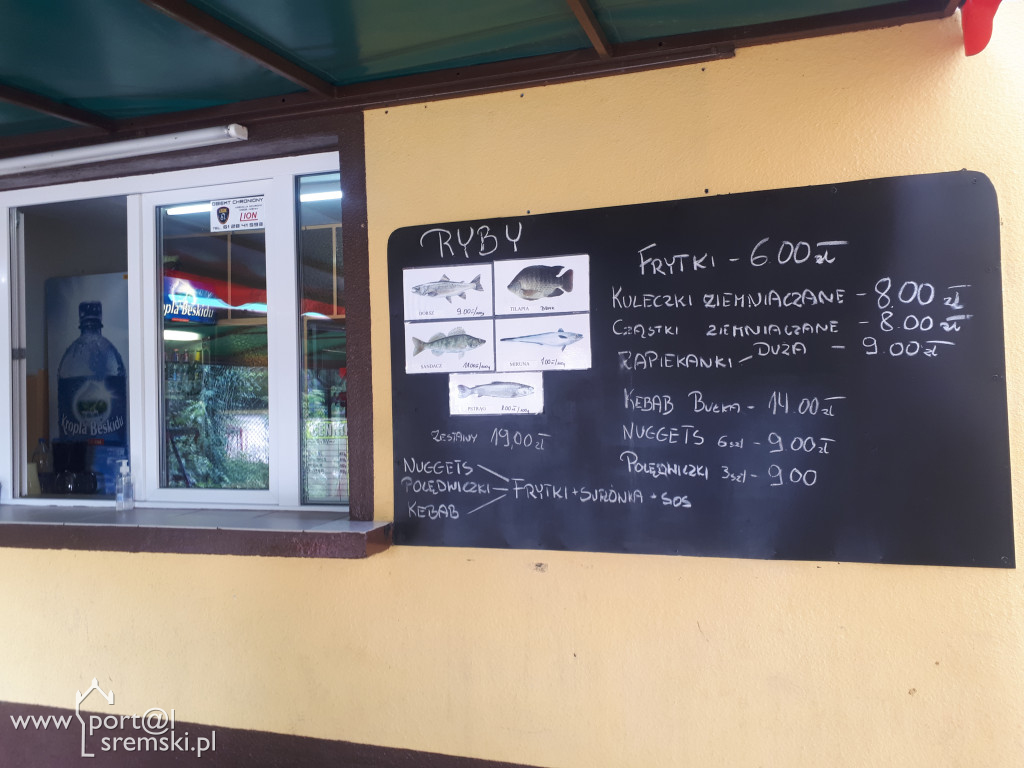 OBIEKT CHRONIONY
LION
Kropla Beskidu
RYBY
DORSZ 9.00zł/100g
TILAPIA
SANDACZ
MIRUNA 7.00zł/100g
PSTRĄG 8.00zł/100g
ZESTAWY 19,00 zł
NUGGETS
POLĘDWICZKI - FRYTKI + SURÓWKA + SOS
KEBAB
FRYTKI - 6.00 zł
KULECZKI ZIEMNIACZANE - 8.00 zł
CZĄSTKI ZIEMNIACZANE - 8.00 zł
ZAPIEKANKI - DUŻA - 9.00 zł
KEBAB BUŁKA - 14.00 zł
NUGGETS 6szt - 9.00 zł
POLĘDWICZKI 3szt - 9.00
www.port@l
sremski.pl